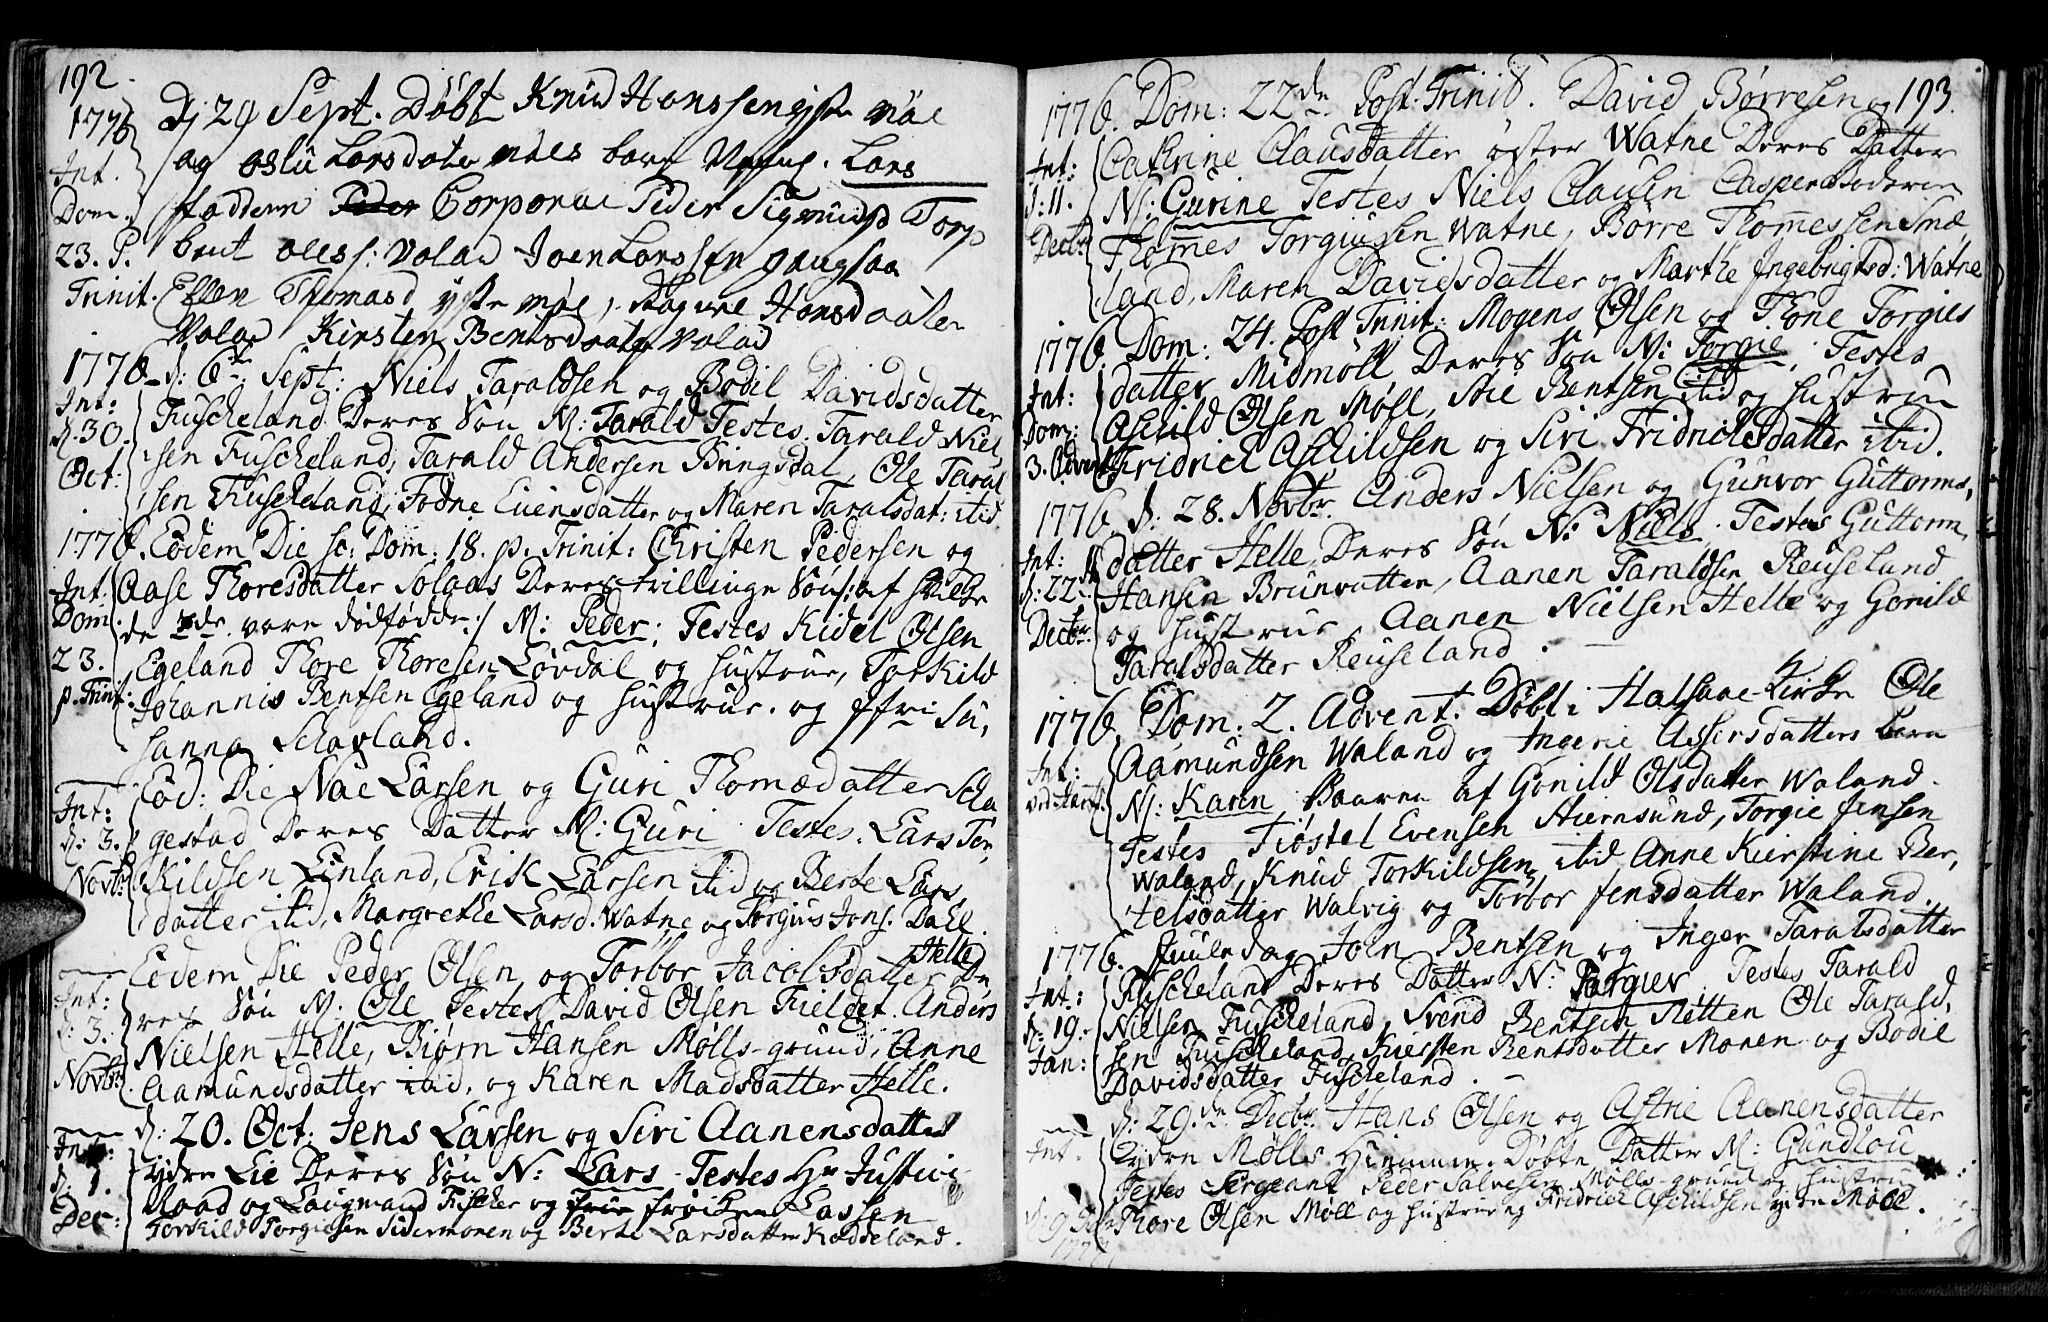 192.
1776 Dj 29 Sept. Döbt Knud Hanssen yste möe
Int. og Oslu Larsdater möes barn Lars
Dom. faddern Peder Corporal Peder Sigmunds Torp
23. P. bent oless: Volad Joen Larssen Haugaa
Trinit. Ellen Thomasd yste möe, Hansdaater
Volad Kirsten Bentsdaater Volad
1776 d: 6te Sept: Niels Taraldsen og Bodil Davidsdatter
Int: Fuscheland Deres Sön N: Tarald Testes Tarald Niel,
d. 30. sen Fuscheland, Tarald Andersen Bringsdal, Ole Taral
Oct: sen Fuscheland, Todne Evensdatter og Maren Taralsdat: ibid
1776. Eodem Die sc: Dom: 18. p. Trinit: Christen Pedersen og
Int. Aase Thoresdatter Solaas Deres trillinge Sön /: af hvilche
Dom: de 2de vare dödfödde :/ N: Peder; Testes Kidel Olsen
23. Egeland Thore Thoresen Lövdal og hustrue, Torkild
p. Trinit: Johannis Bentsen Egeland og hustrue. og Su,
sanna Schavland.
Eod: Die Nae Larsen og Guri Thomædatter Scha
Int: gestad Deres Datter N: Guri Testes. Lars Tor,
d: 3. Kildsen Linland, Erik Larsen ibid og Berte Lars
Novbr datter ibid, Margrethe Larsd. Watne og Torgius Jons. Dahl.
Eodem Die Peder Olsen og Torbor Jacobsdatter Helle De
Int: res Sön N. Ole Testes David Olsen Fieldet. Anders
d: 3. Nielsen Helle, Biörn Hansen Mölls-grund, Anne
Novbr Aamundsdatter ibid, og Karen Madsdatter Helle.
d: 20. Oct: Jens Larsen og Siri Aanensdatter
Int: ydre Lie Deres Sön N: Lars - Testes Hr Justice
d: 1. Raad og Laugmand Fischer og frue fröiken Lassen
Dec: Torkild Torgiusen Sidermonen og Berte Larsdatter Kaddeland.
193.
1776. Dom: 22de Post: Trinit. David Börresen og
Int: Cathrine Clausdatter öster Watne Deres Datter
d: 11. N: Gurine Testes Niels Clausen Casper
Decbr Thomes Torgiusen Watne, Börre Thomessen Smæ
land, Maren Davidsdatter og Marthe Ingebrigtsd: Watne
1776. Dom: 24. Post Trinit: Mogens Olsen og Thone Torgies
Int: datter Midmöll Deres Sön N: Torgie, Testes
Dom: Aschild Olsen Möll, Aie Bentsen ibid og hustrue
3. Advent Fridrich Aschildsen og Siri Fridrichsdatter ibid.
1776 d: 28. Novbr. Anders Nielsen og Gunvor Guttorms,
Int: datter Helle, Deres Sön N: Niels. Testes Guttorm
d: 22. Hansen Brunvatten, Aanen Taraldsen Reuseland
Decbr og hustrue, Aanen Nielsen Helle og Gonild
Taralsdatter Reuseland.
1776. Dom: 2. Advent. Döbt i Halsaae-Kirke Ole
Int: Aamundsen Waland og Ingerie Assersdatters barn
N: Karen Baaren af Gonild Olsdatter Waland.
Testes Tiöstel Evensen Hiernsund, Torgie Jensen
Waland, Knud Torkildsen ibid Anne Kierstine Ber,
telsdatter Walvig og Torbor Jensdatter Waland.
1776. Juule dag John Bentsen og Inger Taralsdatter
Int: Fuscheland Deres Datter N: Torgier Testes Tarald
d: 19. Nielsen Fuscheland, Svend Bentsen Sletten Ole Tarald,
Jan: sen Fuscheland, Kiersten Bentsdatter Monen og Bodil
Davidsdatter Fuscheland.
d: 29de Decbr Hans Olsen og Astrie Aanensdatter
Int. Ydre Mölls Hiemme Döbte Datter N: Gundlou
Testes Sergeant Peder Salvesen Mölls-grund og hustrue
Thore Olsen Möll og hustrue og Fridrich Aschildsen ydre Möll.